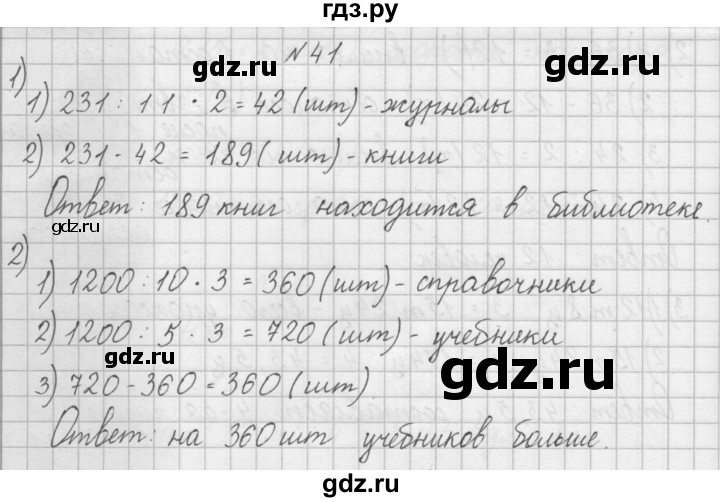 гдз.ру
№41.
1)
1) 231 : 11 · 2 = 42 (шт) - журналы
2) 231 - 42 = 189 (шт) - книги
Ответ: 189 книг находится в библиотеке.
2)
1) 1200 : 10 · 3 = 360 (шт) - справочники
2) 1200 : 5 · 3 = 720 (шт) - учебники
3) 720 - 360 = 360 (шт)
Ответ: на 360 шт учебников больше.
gdz.ru
gdz.ru
gdz.ru
gdz.ru
gdz.ru
gdz.ru